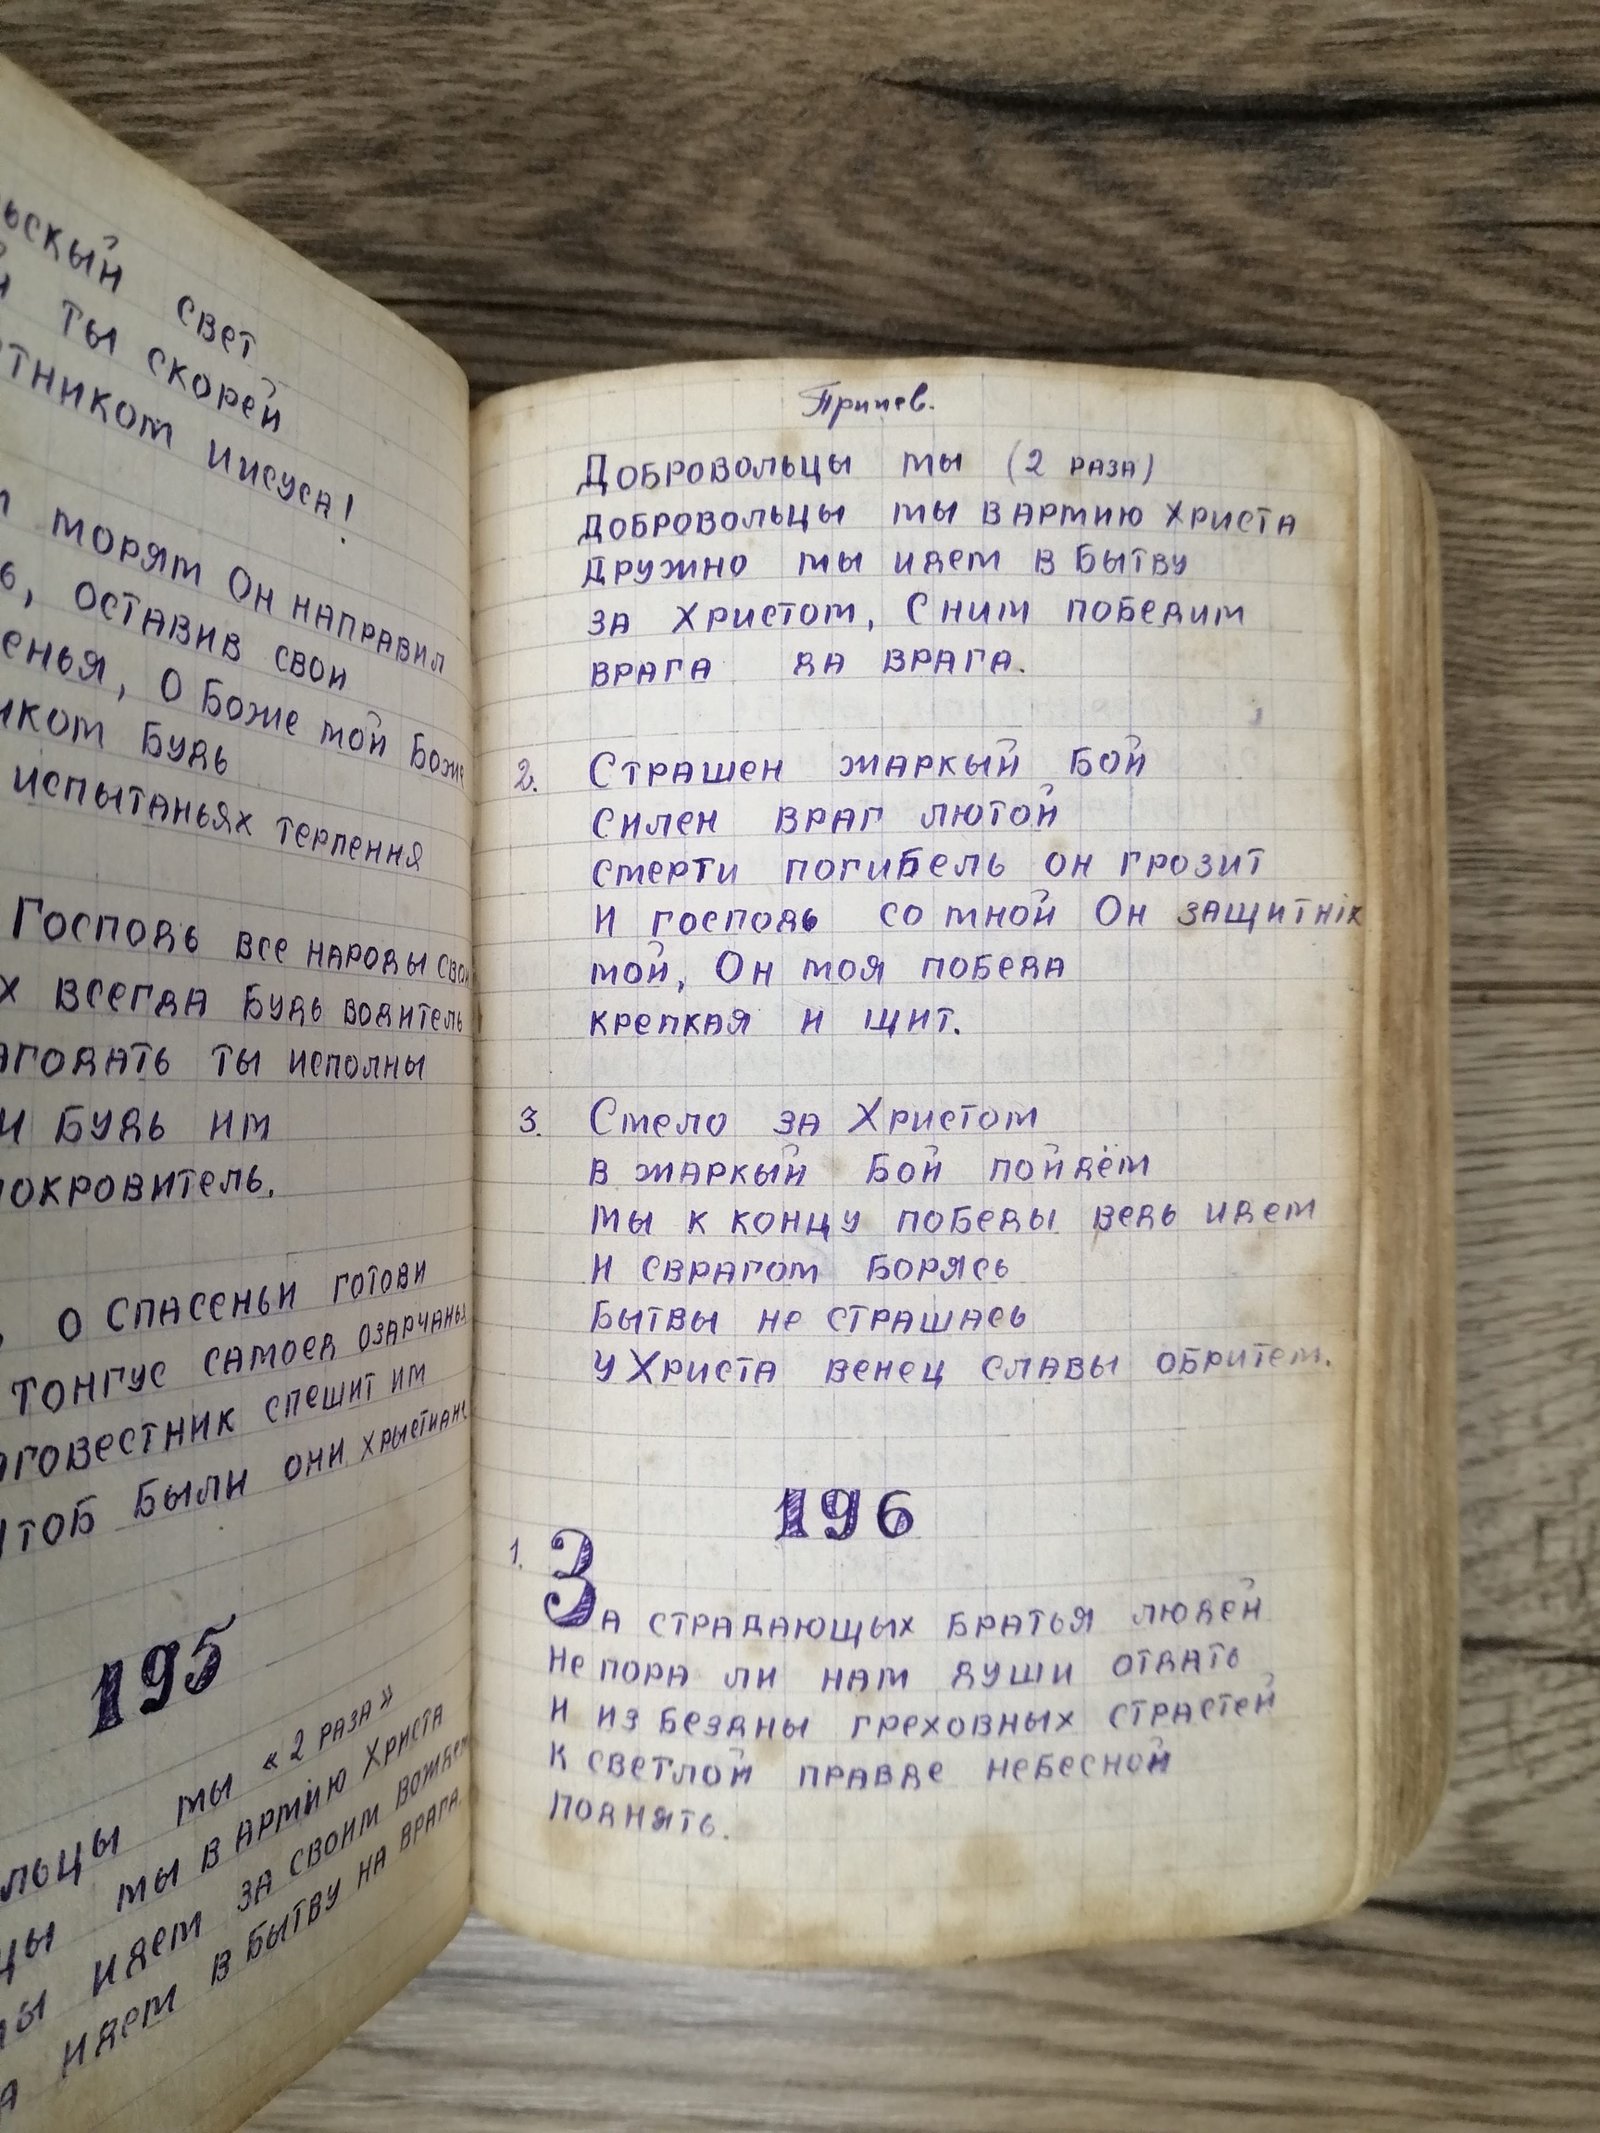 свет
ты скорей
Иисуса!
морям Он направил
оставив свои
О Боже мой Боже
Будь
испытаньях терпення
Господь все народы
всегда будь водитель
ты исполны
Будь им
покровитель.
О Спасеньи готови
тонгус самоед
спешит им
Были они
195
мы «2 раза»
мы в армию Христа
идем за своим вождем
идем в Бытву на врага.
Припев.
Добровольцы мы (2 раза)
добровольцы мы в армию Христа
Дружно мы идем в Бытву
за Христом, С ним победим
врага да врага.
2. Страшен жаркый Бой
силен враг лютой
смерти погибель он грозит
И господь со мной Он защитнік
мой, Он моя победа
крепкая и щит.
3. Смело за Христом
в жаркый Бой пойдём
мы к концу победы ведь идем
И сврагом Борясь
Бытвы не страшась
у Христа венец славы обритем.
196
1. За страдающых Братья людей
Не пора ли нам души отдать
И из Бездны греховных страстей
К светлой правде небесной
поднять.